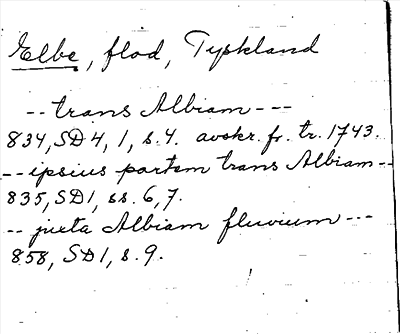 Elbe, flod, Tyskland
-- trans Albiam ---
834, SD 4, 1, s. 4. avskr. fr. tr. 1743.
-- ipsius partem trans Albiam --
835, SD 1, ss. 6, 7.
-- juxta Albiam fluvium ---
858, SD 1, s. 9.